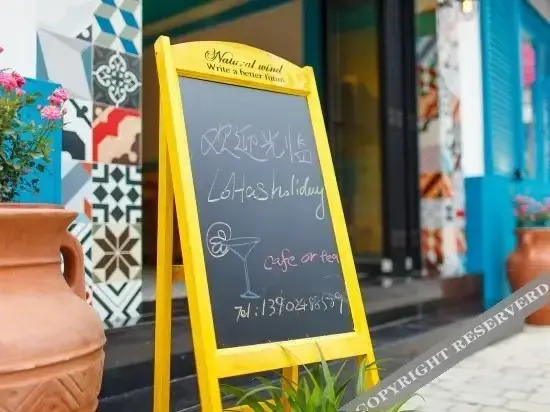 Natural wind
Write a better future
欢迎光临
LOHasholiday
cafe or tea
COPYRIGHT RESERVED